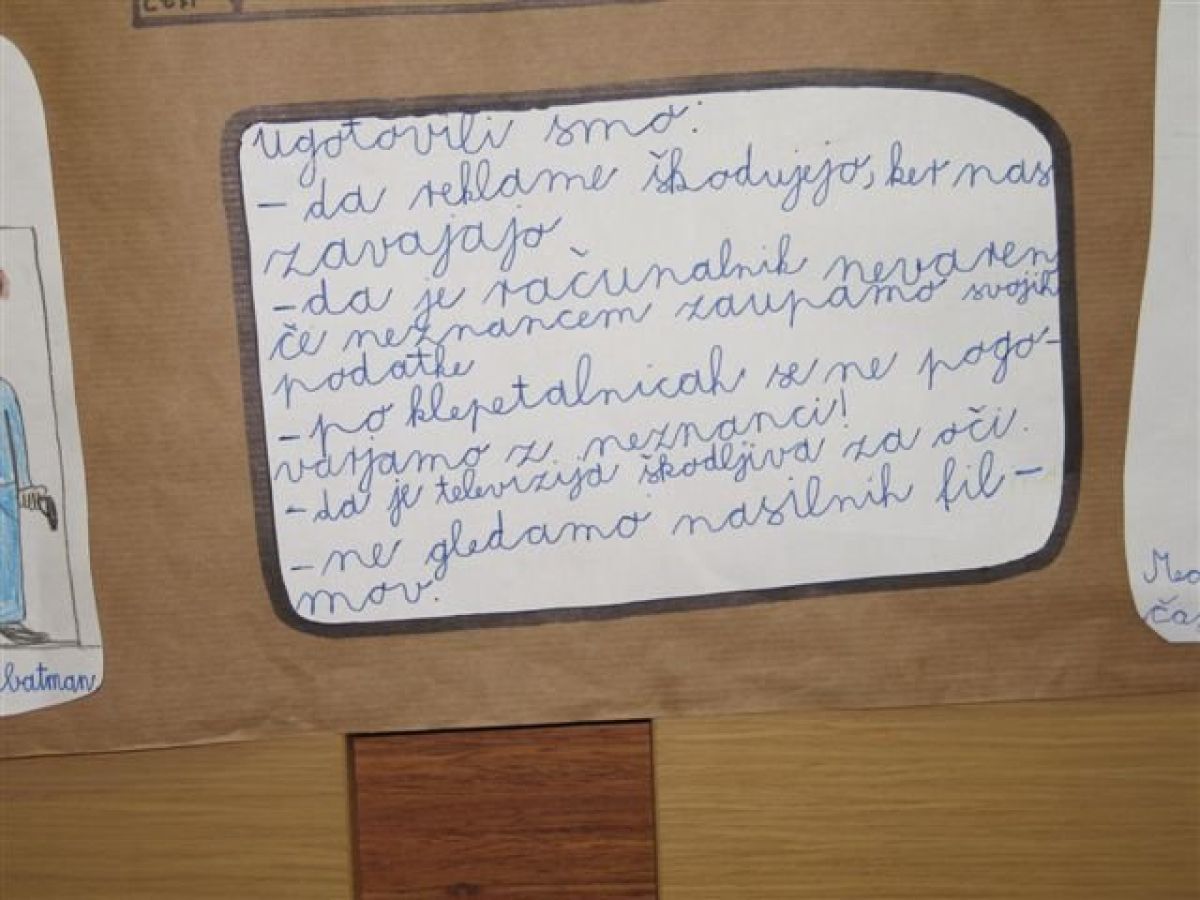 Ugotovili smo:
- da reklame škodujejo, ker nas
zavajajo
- da je računalnik nevaren
če neznancem zaupamo svojih
podatke
- po klepetalnicah se ne pogo-
varjamo z neznanci!
- da je televizija škodljiva za oči.
- ne gledamo nasilnih fil-
mov.
batman